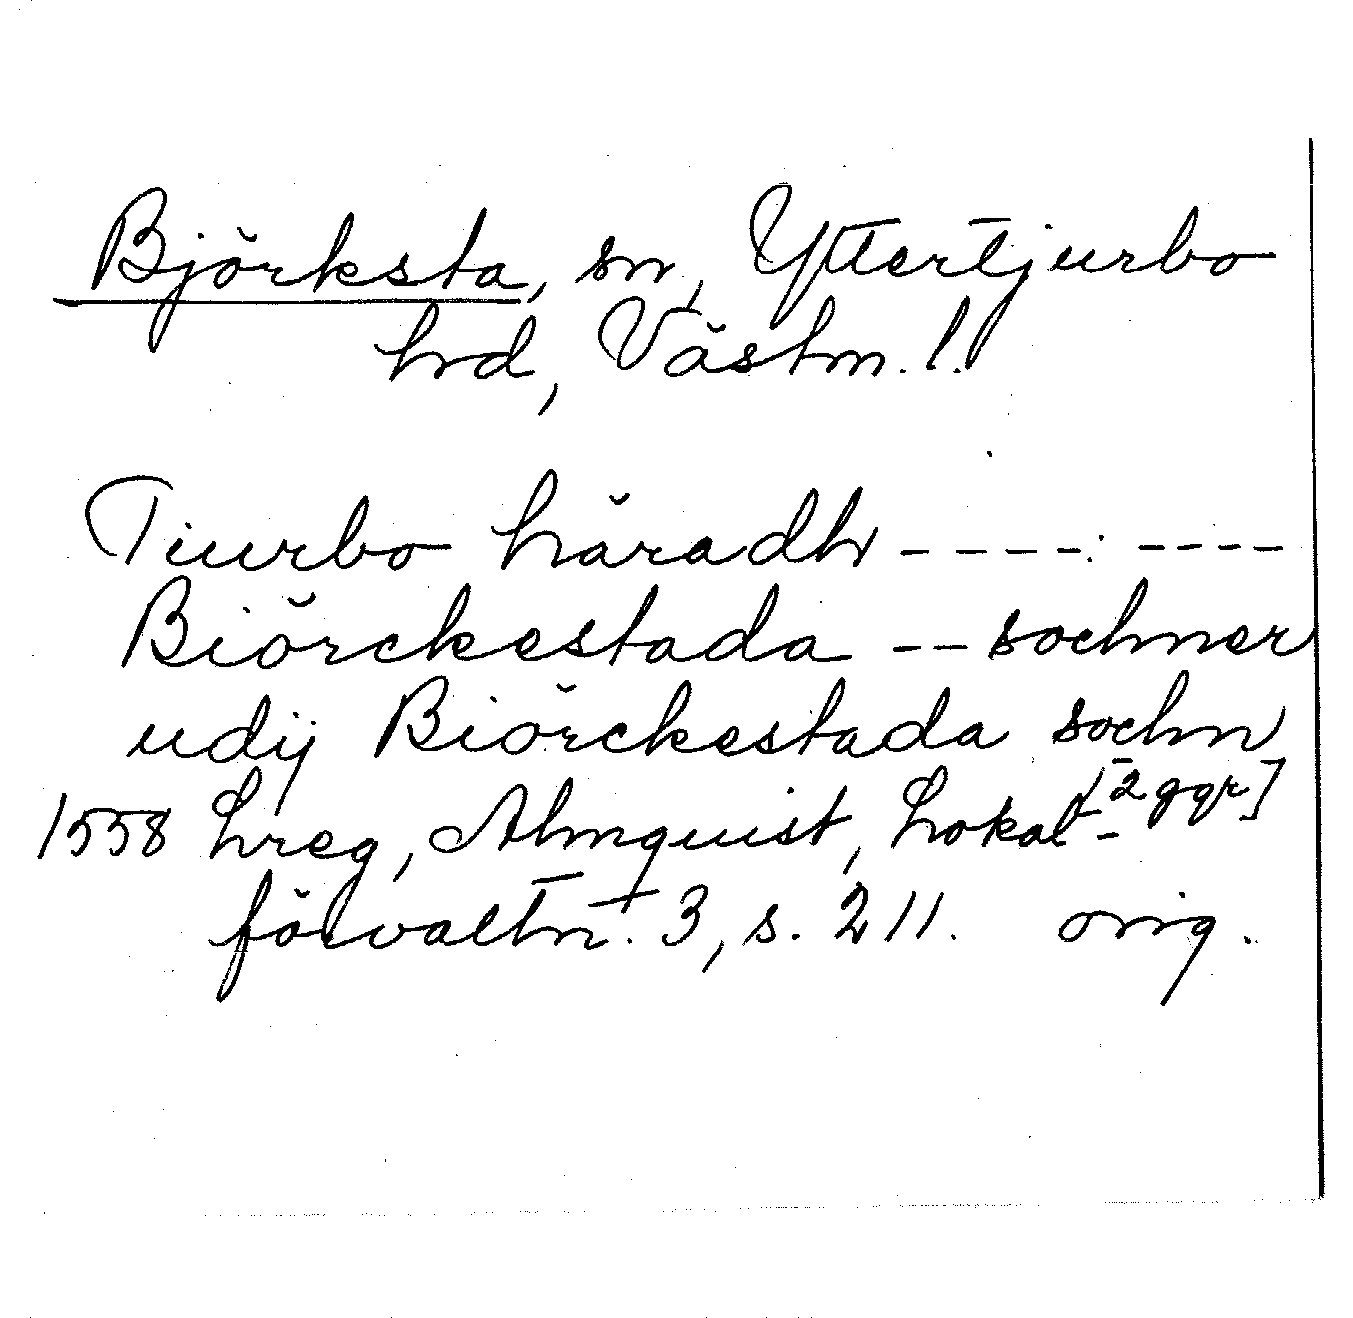 Björksta, sn, Yttertjurbo
hrd, Västm. l.
Tiurbo häradh ---- ----
Biörckestada -- sochner
udij Biörckestada sochn
[2 ggr]
1558 Lreg, Almquist, Lokal-
förvaltn. 3, s. 211. orig.